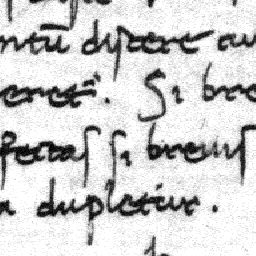 ntū discere au
eret. Si bre
fectas si breuis
a dupletur.